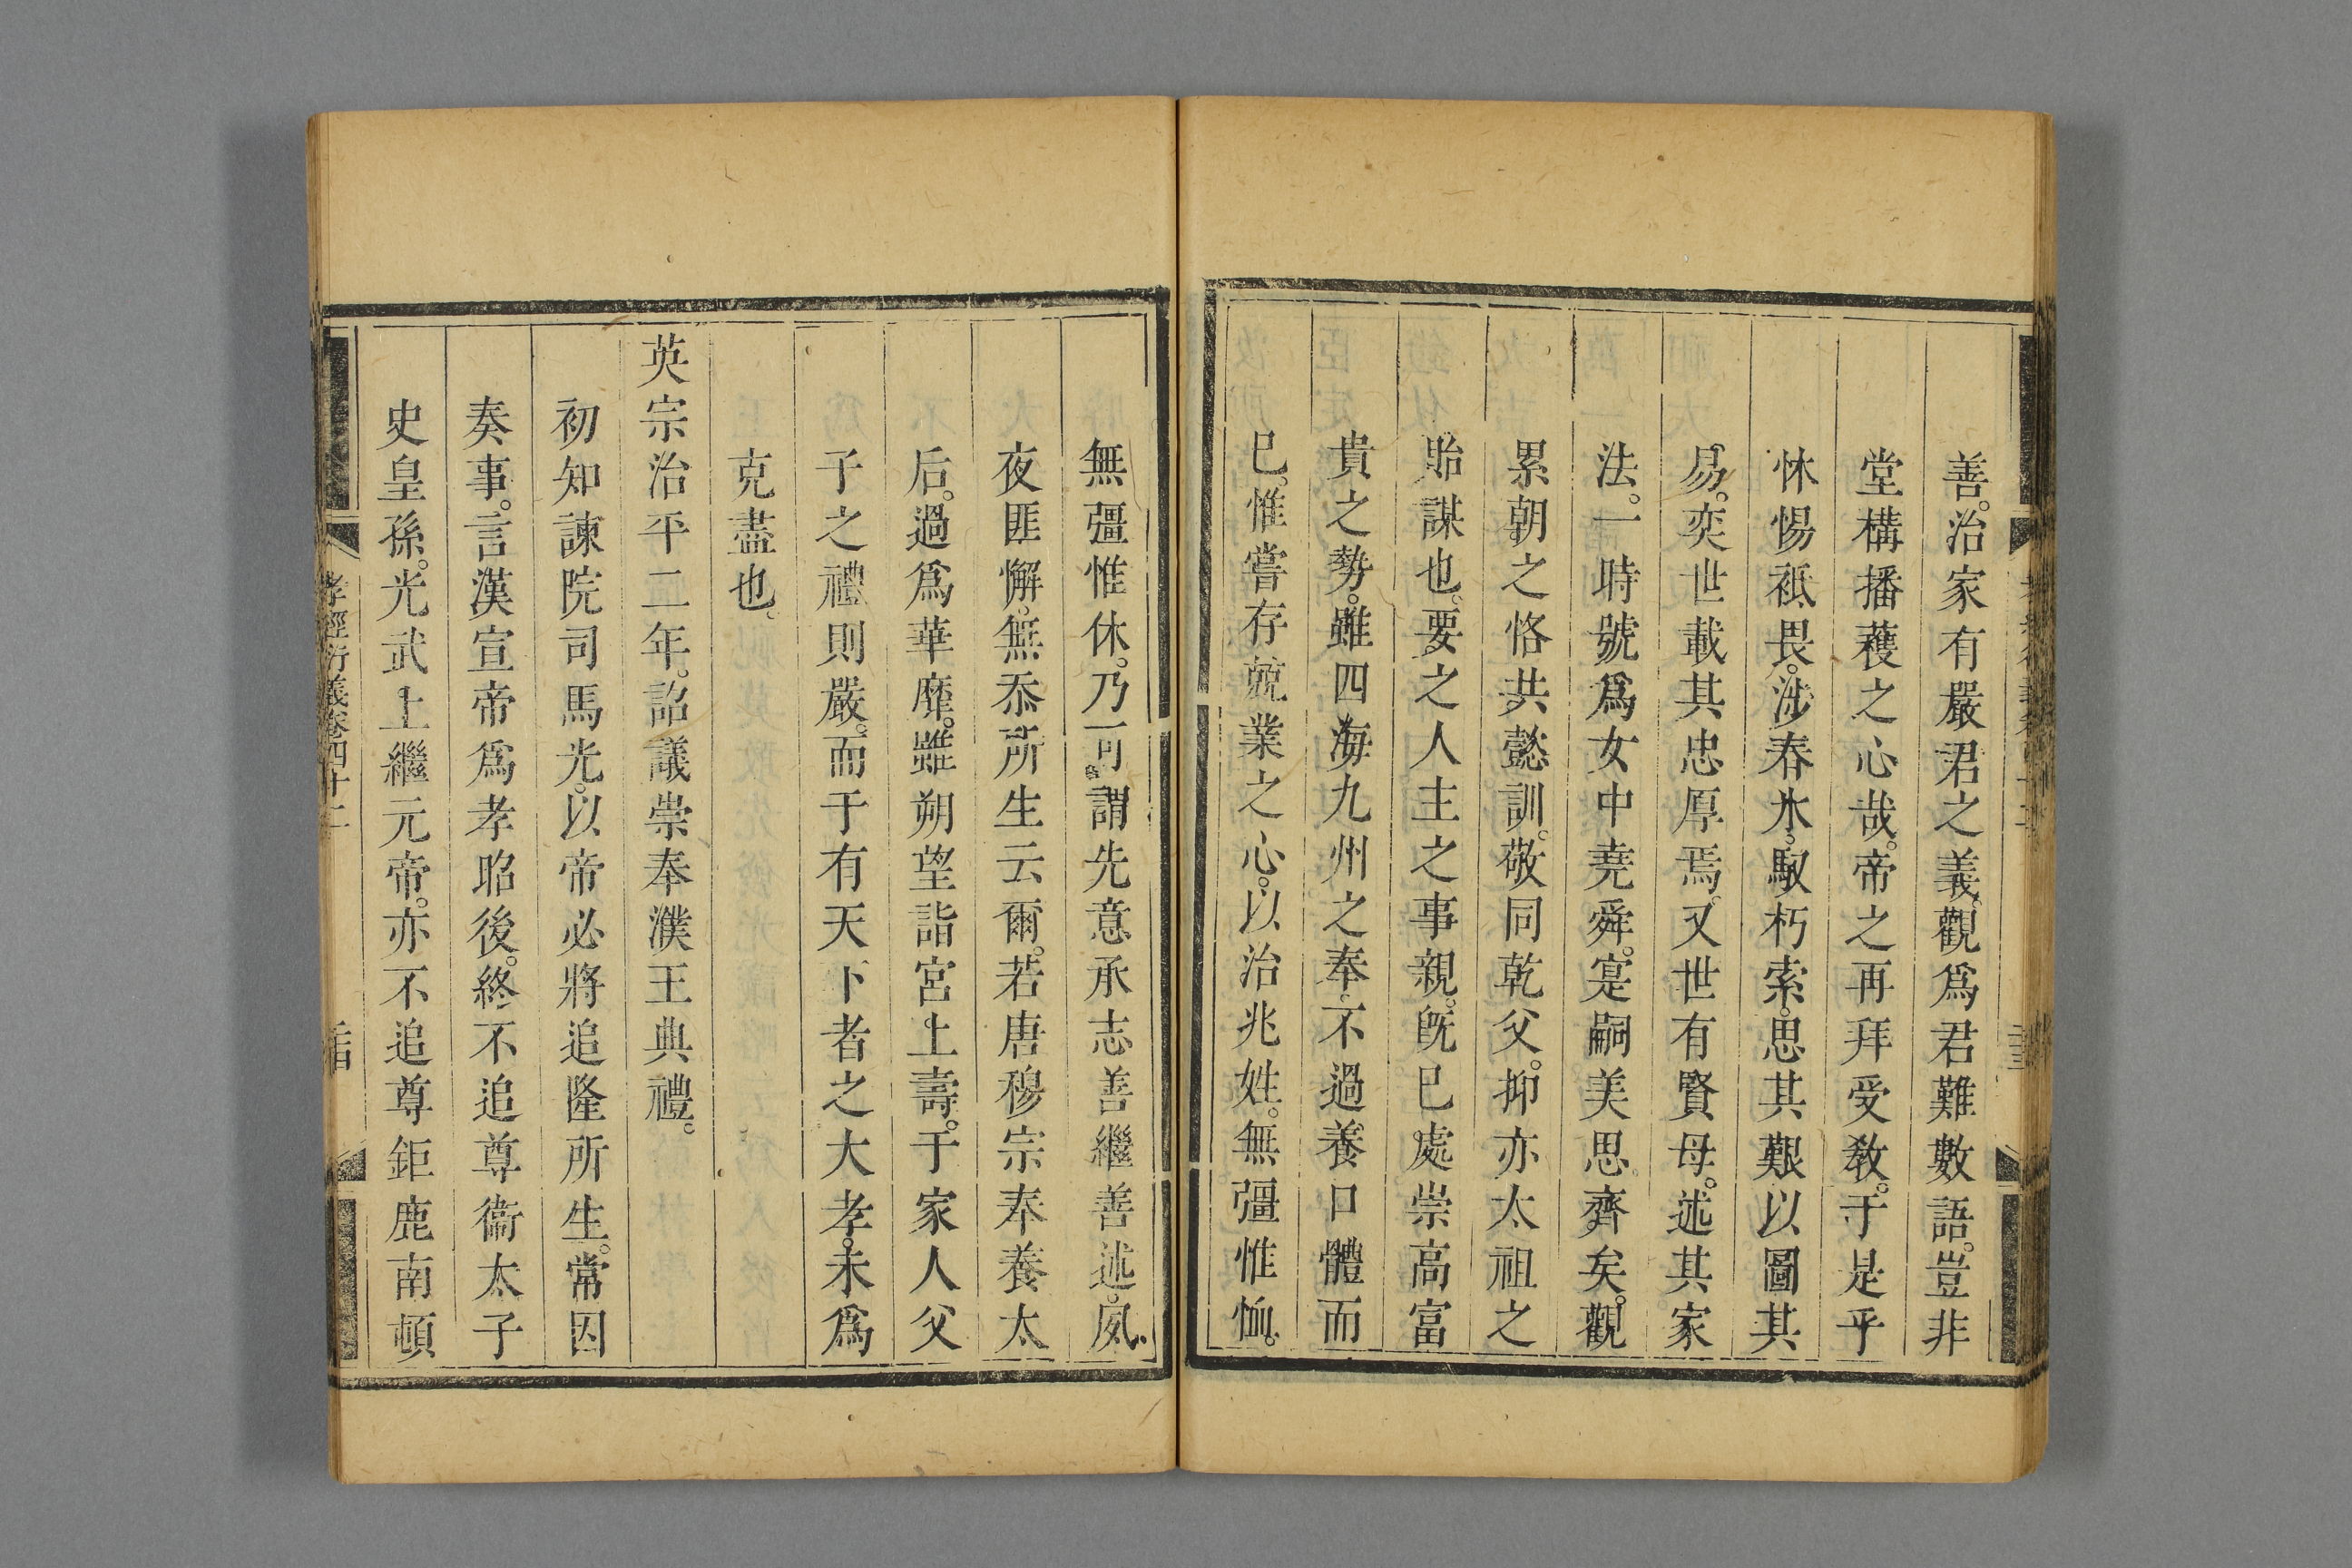 善。治家有嚴君之義。觀爲君難數語。豈非
堂構播穫之心哉。帝之再拜受敎。于是乎
怵惕祗畏。涉春氷。馭朽索。思其艱以圖其
易。奕世載其忠厚焉。又世有賢母。述其家
法。一時號爲女中堯舜。寔嗣美思齊矣。觀
累朝之恪共懿訓。敬同乾父。抑亦太祖之
貽謀也。要之人主之事親。旣已處崇高富
貴之勢。雖四海九州之奉。不過養口體而
已。惟嘗存兢業之心。以治兆姓。無彊惟恤。
無彊惟休。乃可謂先意承志善繼善述。夙
夜匪懈。無忝所生云爾。若唐穆宗奉養太
后。過爲華靡。雖朔望詣宮上壽。于家人父
子之禮則嚴。而于有天下者之大孝。未爲
克盡也。
英宗治平二年。詔議崇奉濮王典禮。
初知諫院司馬光。以帝必將追隆所生。常因
奏事。言漢宣帝爲孝昭後。終不追尊衞太子
史皇孫。光武上繼元帝。亦不追尊鉅鹿南頓
孝經衍義卷四十二